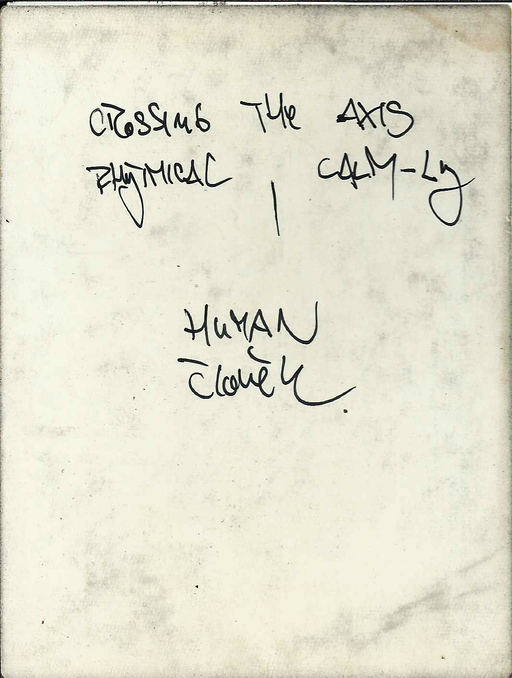 CROSSING THE AXIS
RHYTMICAL | CALM-Ly
HUMAN
člověk